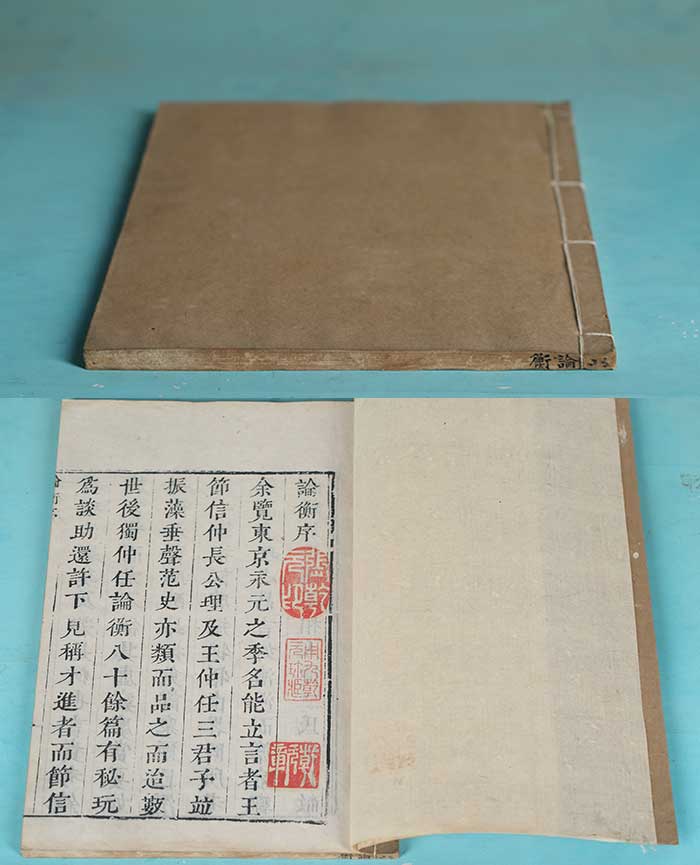 論衡
論衡序
余覽東京永元之季名能立言者王
節信仲長公理及王仲任三君子並
振藻垂聲范史亦類而品之而迨數
世後獨仲任論衡八十餘篇有秘玩
爲談助還許下見稱才進者而節信